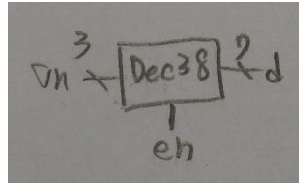 3 ?
in Dec38 d
en